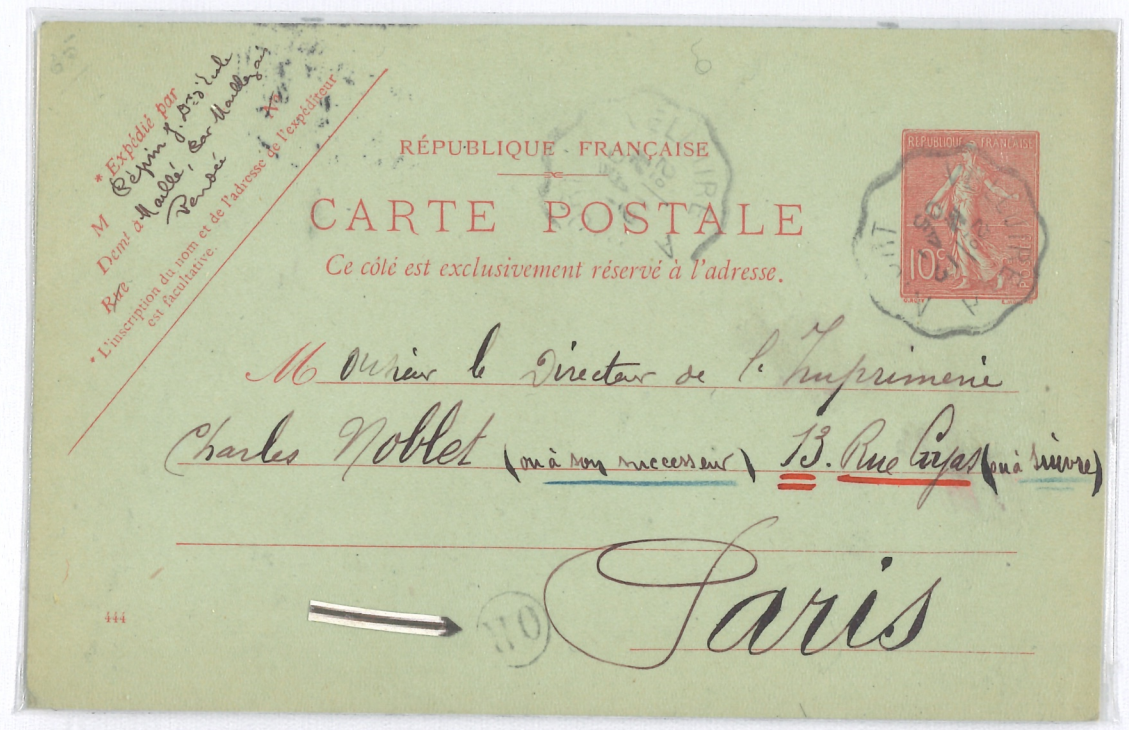 * Expédié par
M Pépin J. Dr d'Ecole
Demt à Maillé, par Maillezais
Vendée
Rue No
* L'inscription du nom et de l'adresse de l'expéditeur
est facultative.
RÉPUBLIQUE FRANÇAISE
CARTE POSTALE
Ce côté est exclusivement réservé à l'adresse.
REPUBLIQUE FRANÇAISE
10c
POSTES
Monsieur le Directeur de l'Imprimerie
Charles Noblet (ou à son successeur) 13. Rue Cujas (ou à suivre)
Paris
444